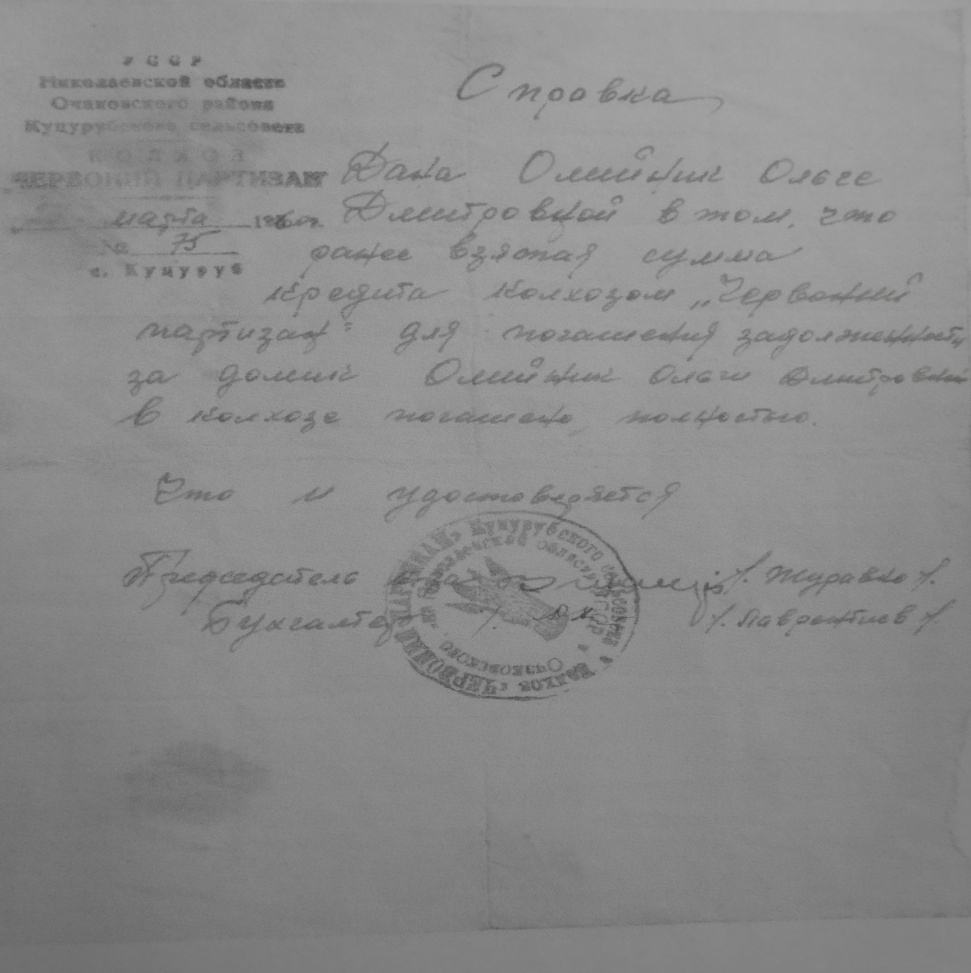 УССР
Николаевской области
Очаковского района
Куцурубского сельсовета
КОЛХОЗ
ЧЕРВОНИЙ ПАРТИЗАН
марта
75
с. Куцуруб
Справка
Дана Олийник Ольге
Дмитровной в том, что
ранее взятая сумма
кредита колхозом „Червоний
партизан" для погашения задолженность
за домик Олийник Ольги Дмитровной
в колхозе погашено полностью.
Что и удостоверяется
Председатель /. Журавко /.
Бухгалтер /. Лаврентиев /.
Колхоз «ЧЕРВОНИЙ ПАРТИЗАН» Куцурубского Очаковского Николаевской области УССР